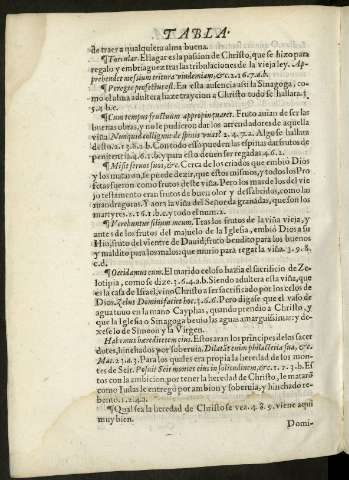 TABLA.
de traer a qualquiera alma buena.
¶Torcular. El lagar es la passion de Christo, que se hizo para
regalo y embriaguez tras las tribulaciones de la vieja ley. Ap-
prehendet messium tritura vindemiam, &c. 2.16.7.a.b.
¶Peregre profectus est. En esta ausencia assi la Sinagoga, co-
mo el alma adultera haze traycion a Christo todo se hallara.
5.4.b.c.
¶Cum tempus fructuum appropinquaret. Fruto auian de ser las
buenas obras, y no le pudieron dar los arrendadores de aquella
viña. Nunquid colligunt de spinis vuas? 2.4.7.2. Algo se hallara
desto. 2.13.8.2.b. Con todo esso pueden las espinas dar frutos de
penitencia 4.6.1. & ypura esto deuen ser regadas 4.6.2.
¶Misit seruos suos, &c. Cerca de los criados que embió Dios
y los mataron, se puede dezir, que estos mismos, y todos los Pro
fetas fueron como frutos deste viña. Pero los mas de los del vie
jo testamento eran frutos de buen olor y dessabridos, como las
mandragoras. Y aora la viña del Señor da granadas, que son los
martyres. 2.16.1.b.c. y todo el num. 2.
¶Verebuntur filium meum. Tras los frutos de la viña vieja, y
antes de los frutos del majuelo de la Iglesia, embió Dios a su
Hijo, fruto del vientre de Dauid, fruto bendito para los buenos
y maldito para los malos: que murio para regar la viña. 3.9.8.
c.d.
¶Occidamus eum. El marido celoso hazia el sacrificio de Ze-
lotipia, como se dize. 3.6.4.a.b. Siendo adultera esta viña, que
es la casa de Israel, vino Christo a ser sacrificado por los celos de
Dios. Zelus Domini faciet hoc. 3.6.6. Pero digase que el vaso de
agua tuuo en la mano Cayphas, quando prendio a Christo, y
que la Iglesia o Sinagoga beuio las aguas amarguissimas: y de-
xese lo de Simeon y la Virgen.
Habeamus hereditatem eius. Ellos eran los principes de los sacer
dotes, hinchados por soberuia, Dilatent enim philacteria sua, &c.
Mat. 23.4.3. Para los quales era propia la heredad de los mon-
tes de Seir. Posuit Seir montes eius in solitudinem, &c. 1.7.3.b. Es
tos con la ambicion por tener la heredad de Christo, le mataró
como Iudas le entregó por ambion y soberuia, y hinchado re-
bentó. 1.2.4.2.
¶Qual sea la heredad de Christo se vea. 4.8.9. viene aqui
muy bien.
Domi-